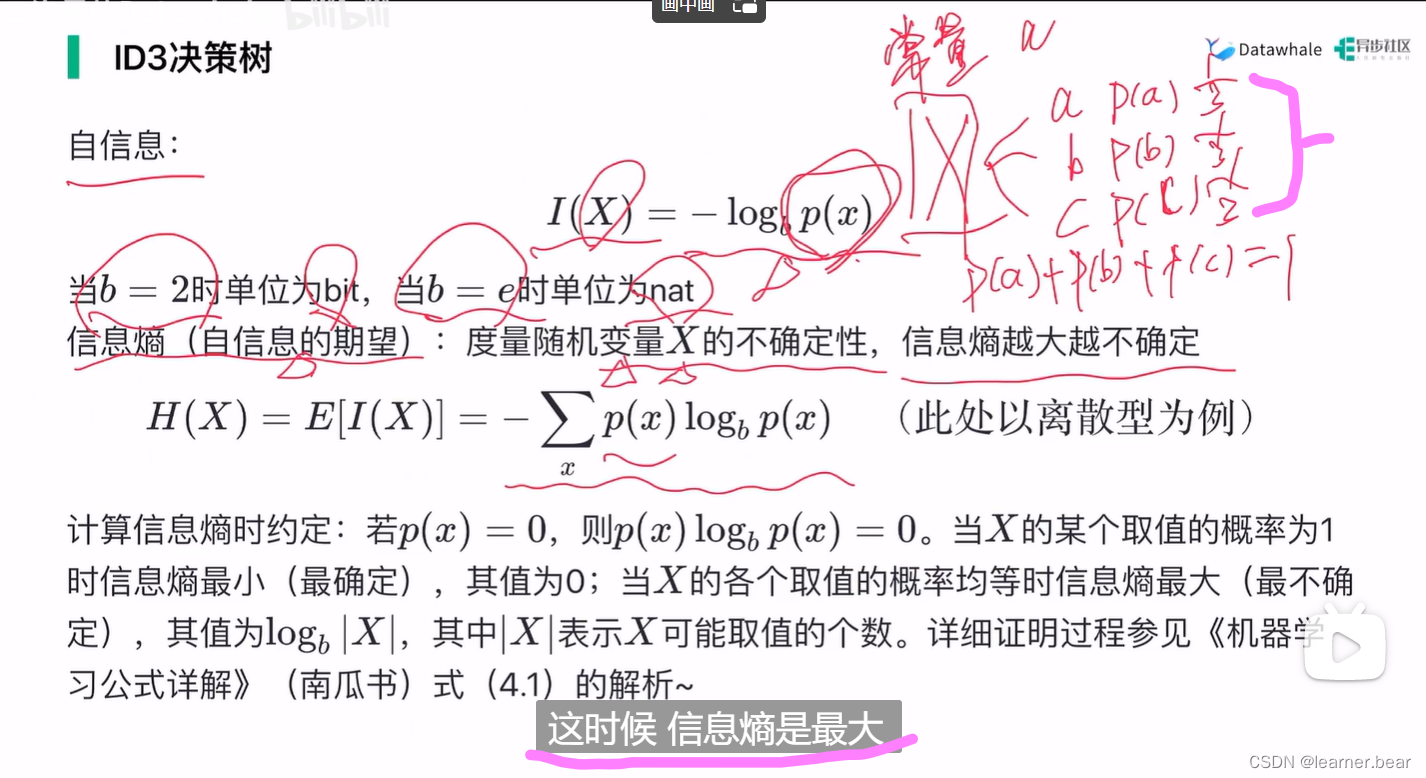 画中画
bilibili
ID3决策树
Datawhale 异步社区
常量 a
a p(a)
b p(b)
c p(c)
p(a)+p(b)+p(c)=1
X
自信息：
I(X) = −log_b p(x)
当b = 2时单位为bit，当b = e时单位为nat
信息熵（自信息的期望）：度量随机变量X的不确定性，信息熵越大越不确定
H(X) = E[I(X)] = −∑_x p(x) log_b p(x) （此处以离散型为例）
计算信息熵时约定：若p(x) = 0，则p(x) log_b p(x) = 0。当X的某个取值的概率为1
时信息熵最小（最确定），其值为0；当X的各个取值的概率均等时信息熵最大（最不确
定），其值为log_b |X|，其中|X|表示X可能取值的个数。详细证明过程参见《机器学
习公式详解》（南瓜书）式（4.1）的解析~
这时候 信息熵是最大
CSDN @learner.bear